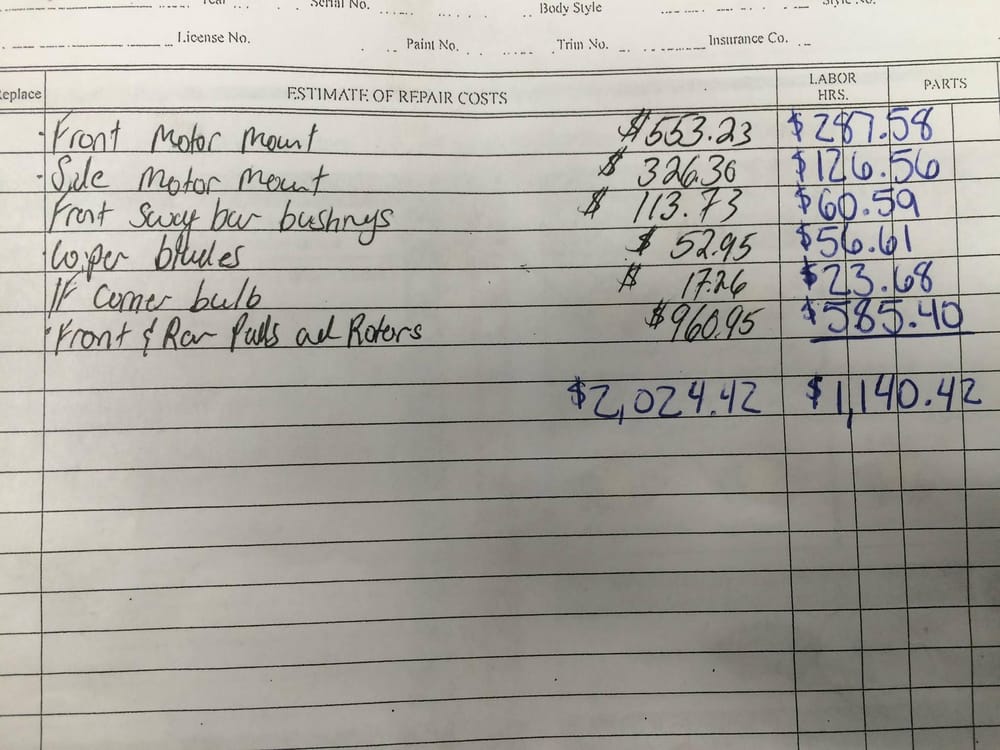 Serial No. Body Style
License No. Paint No. Trim No. Insurance Co.
Replace ESTIMATE OF REPAIR COSTS LABOR HRS. PARTS
Front Motor Mount $553.23 $287.58
Side Motor Mount $326.30 $126.56
Front Sway bar bushings $113.73 $60.59
Wiper blades $52.95 $56.61
lf Corner bulb $17.26 $23.68
Front & Rear Pads and Rotors $960.95 $585.40
$2,024.42 $1,140.42